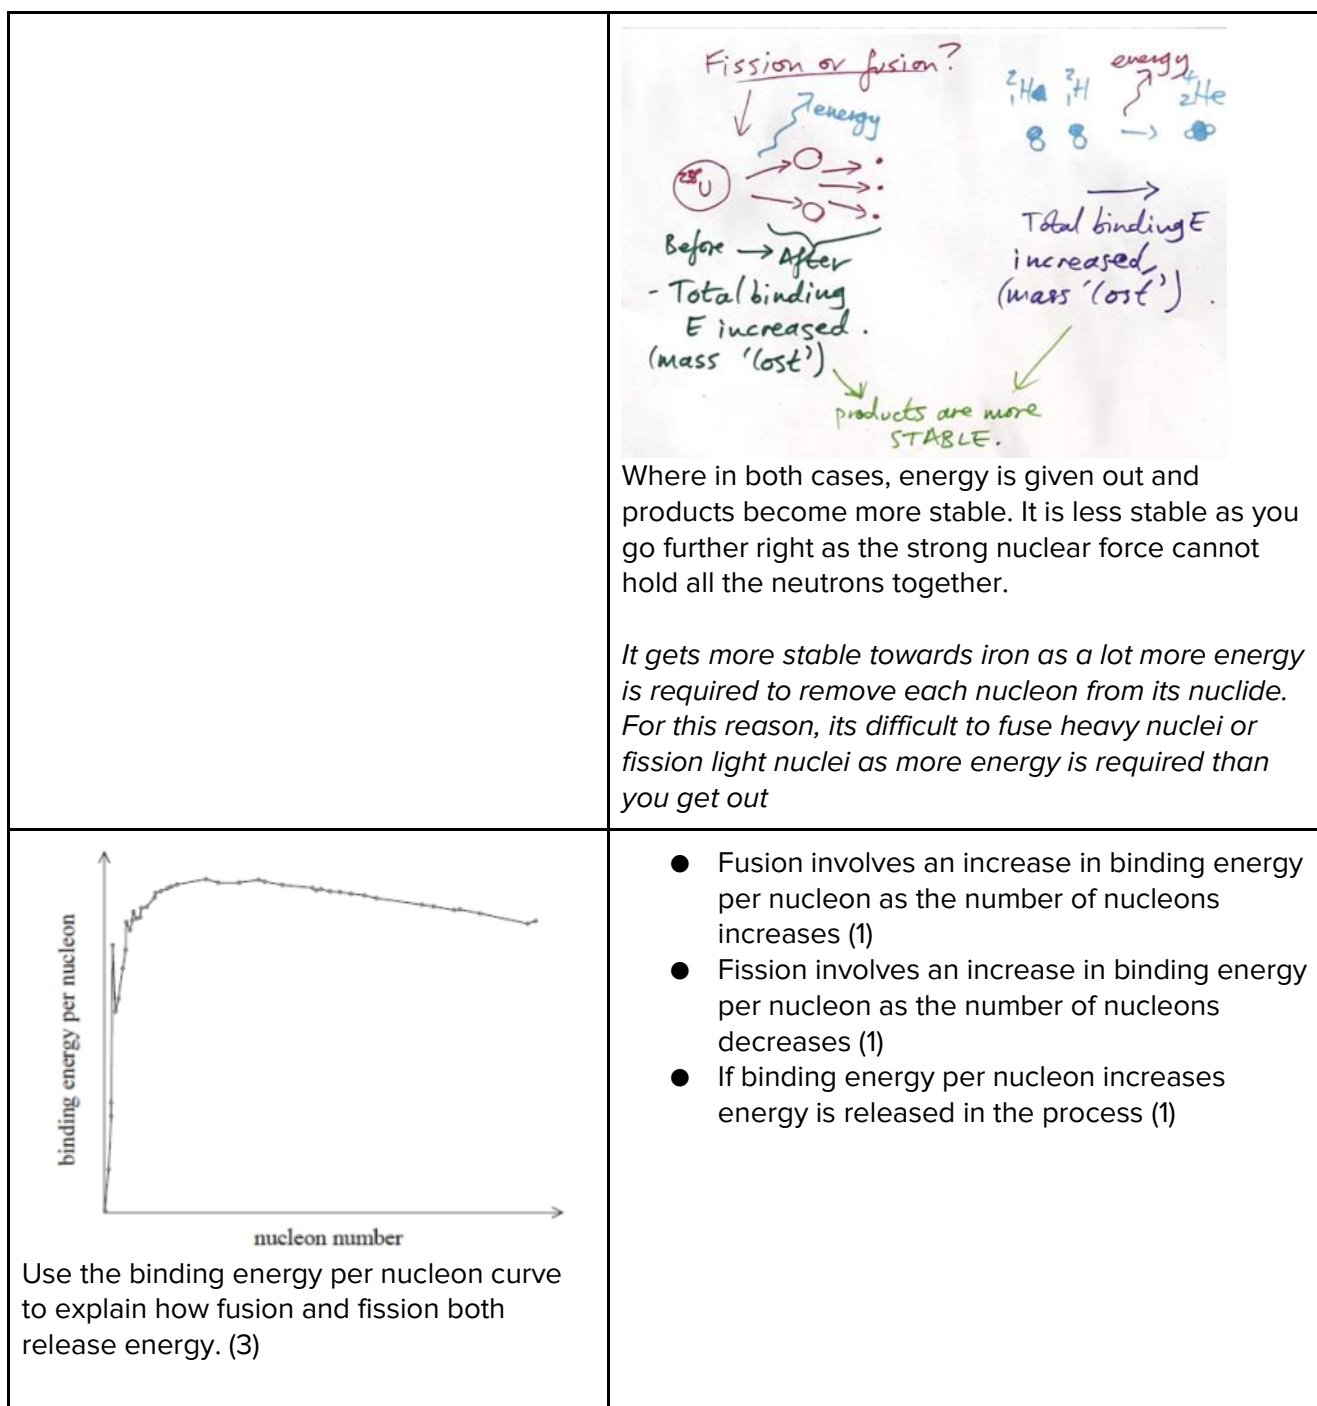 Fission or fusion?
energy
²³⁸U
Before → After
- Total binding
E increased.
(mass 'lost')
energy
²₁He ²₁H ⁴₂He
Total binding E
increased
(mass 'lost').
products are more
STABLE.
Where in both cases, energy is given out and
products become more stable. It is less stable as you
go further right as the strong nuclear force cannot
hold all the neutrons together.
It gets more stable towards iron as a lot more energy
is required to remove each nucleon from its nuclide.
For this reason, its difficult to fuse heavy nuclei or
fission light nuclei as more energy is required than
you get out
binding energy per nucleon
nucleon number
Use the binding energy per nucleon curve
to explain how fusion and fission both
release energy. (3)
● Fusion involves an increase in binding energy
per nucleon as the number of nucleons
increases (1)
● Fission involves an increase in binding energy
per nucleon as the number of nucleons
decreases (1)
● If binding energy per nucleon increases
energy is released in the process (1)